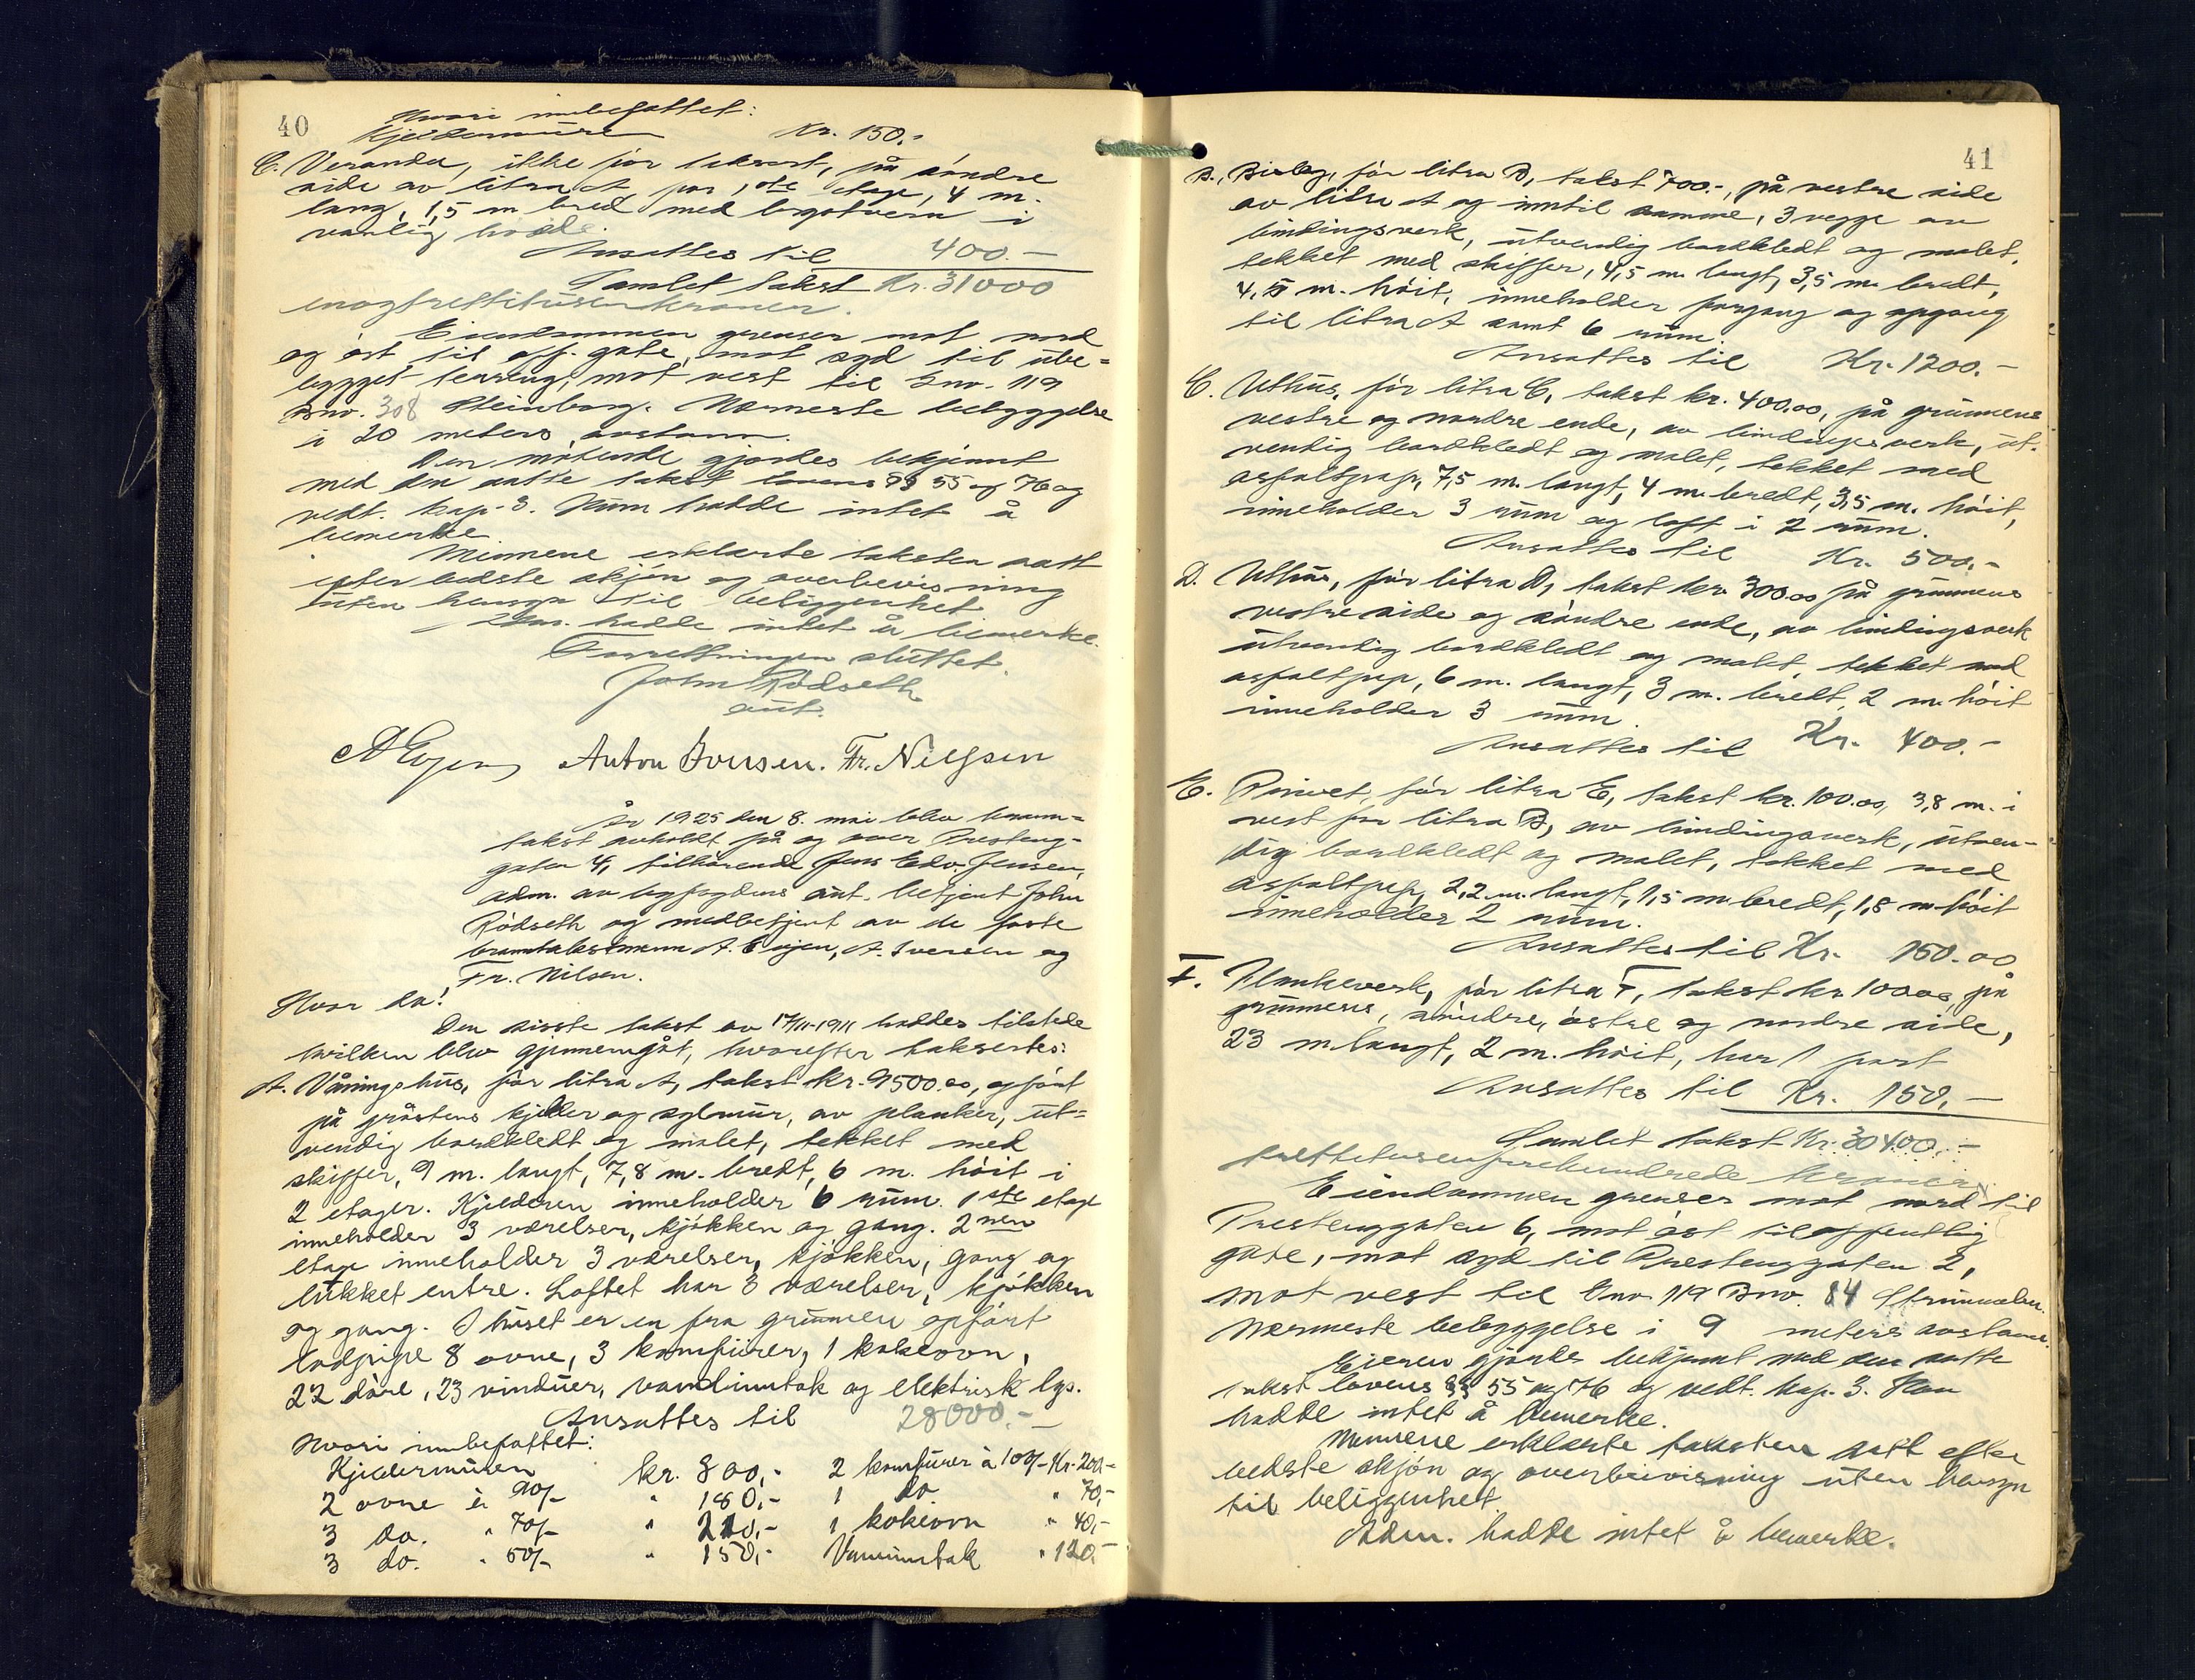 40
Hvori innbefattet:
Kjeldermuren Kr. 150.-
C. Veranda, ikke før taksert, på søndre
side av litra A, for 1ste etage, 4 m.
lang, 1,5 m bred med brystvern i
vanlig høide.
Ansattes til 400.-
Samlet takst Kr. 31000
enogtrettitusen kroner.
Eiendommen grenser mot nord
og øst til off. gate, mot syd til ube-
bygget, mot vest til Gno. 119
Bno. 308 Steinborg. Nærmeste bebyggelse
i 20 meters avstann.
Den møtende gjordes bekjennt
med den satte takst lovens §§ 55 og 76 og
vedt. kap. 3. Hunn hadde intet å
bemerke
Mennene erklærte taksten satt
efter bedste skjøn og overbevisning
uten hensyn til beliggenhet
Adm. hadde intet å bemerke.
Forretningen sluttet.
John Rødseth
aut.
A Evjen Anton Iversen. Fr. Nilssen
År 1925 den 8. mai blev brann-
takst avholdt på og over Presteng-
gaten 4, tilhørende Jens Edv. Jensen,
adm. av byfogdens aut. betjent John
Rødseth og medbetjent av de faste
branntakstmenn A. Evjen, A. Iversen og
Fr. Nilsen.
Hvor da!
Den sisste takst av 17/11-1911 haddes tilstede
hvilken blev gjennemgåt, hvorefter taksertes:
A. Våningshus, før litra A, takst kr. 9500.00, opført
på gråstens kjelder og sylmur, av planker, ut-
vendig bordkledt og malet, tekket med
skiffer, 9 m. langt, 7,8 m. bredt, 6 m. høit i
2 etager. Kjelderen inneholder 6 rum. 1ste etage
inneholder 3 værelser, kjøkken og gang. 2nen
etage inneholder 3 værelser, kjøkken, gang og
lukket entre. Loftet har 3 værelser, kjøkken
og gang. I huset er en fra grunnen opført
lodpipe 8 ovne, 3 komfurer, 1 kokeovn,
22 døre, 23 vinduer, vandinntak og elektrisk lys.
Ansattes til 28000.-
Hvori innbefattet:
Kjeldermuren kr. 800,- 2 komfurer à 100/- Kr. 200,-
2 ovne à 90/- " 180,- 1 do " 70,-
3 do. " 70/- " 210,- 1 kokeovn " 40,-
3 do. " 50/- " 150,- Vanninntak " 120,-
41
B. Bislag, før litra B, takst 700.-, på vestre side
av litra A og inntil samme, 3 vegge av
bindingsverk, utvendig bordkledt og malet,
tekket med skiffer, 4,5 m. langt, 3,5 m. bredt,
4,5 m. høit, inneholder forgang og opgang
til litra A samt 6 rum.
Ansattes til Kr. 1200.-
C. Uthus, før litra C, takst kr. 400.00, på grunnens
vestre og nordre ende, av bindingsverk, ut-
vendig bordkledt og malet, tekket med
asfaltpap, 7,5 m. langt, 4 m. bredt, 3,5 m. høit,
inneholder 3 rum og loft i 2 rum.
Ansattes til Kr. 500.-
D. Uthus, før litra D, takst kr. 300.00 på grunnens
vestre side og søndre ende, av bindingsverk
utvendig bordkledt og malet, tekket med
asfaltpap, 6 m. langt, 3 m. bredt, 2 m. høit
inneholder 3 rum.
Ansattes til Kr. 400.-
E. Privet, før litra E, takst kr. 100.00, 3,8 m. i
vest for litra B, av bindingsverk, utven-
dig bordkledt og malet, tekket med
asfaltpap, 2,2 m. langt, 1,5 m. bredt, 1,8 m. høit
inneholder 2 rum.
Ansattes til Kr. 150.00
F. Plankeverk, før litra F, takst kr. 100.00, på
grunnens, søndre, østre og nordre side,
23 m. langt, 2 m. høit, har 1 port
Ansattes til Kr. 150,-
Samlet takst Kr. 30400,-
trettitusenfirehundrede kroner.
Eiendommen grenser mot nord til
Prestenggaten 6, mot øst til offentlig
gate, mot syd til Prestenggaten 2,
mot vest til Gno 119 Bno. 84
Nærmeste bebyggelse i 9 meters avstann.
Eieren gjordes bekjennt med den satte
takst lovens §§ 55 og 76 og vedt. kap. 3. Han
hadde intet å bemerke.
Mennene erklærte taksten satt efter
bedste skjøn og overbevisning uten hensyn
til beliggenhet.
Adm. hadde intet å bemerke.